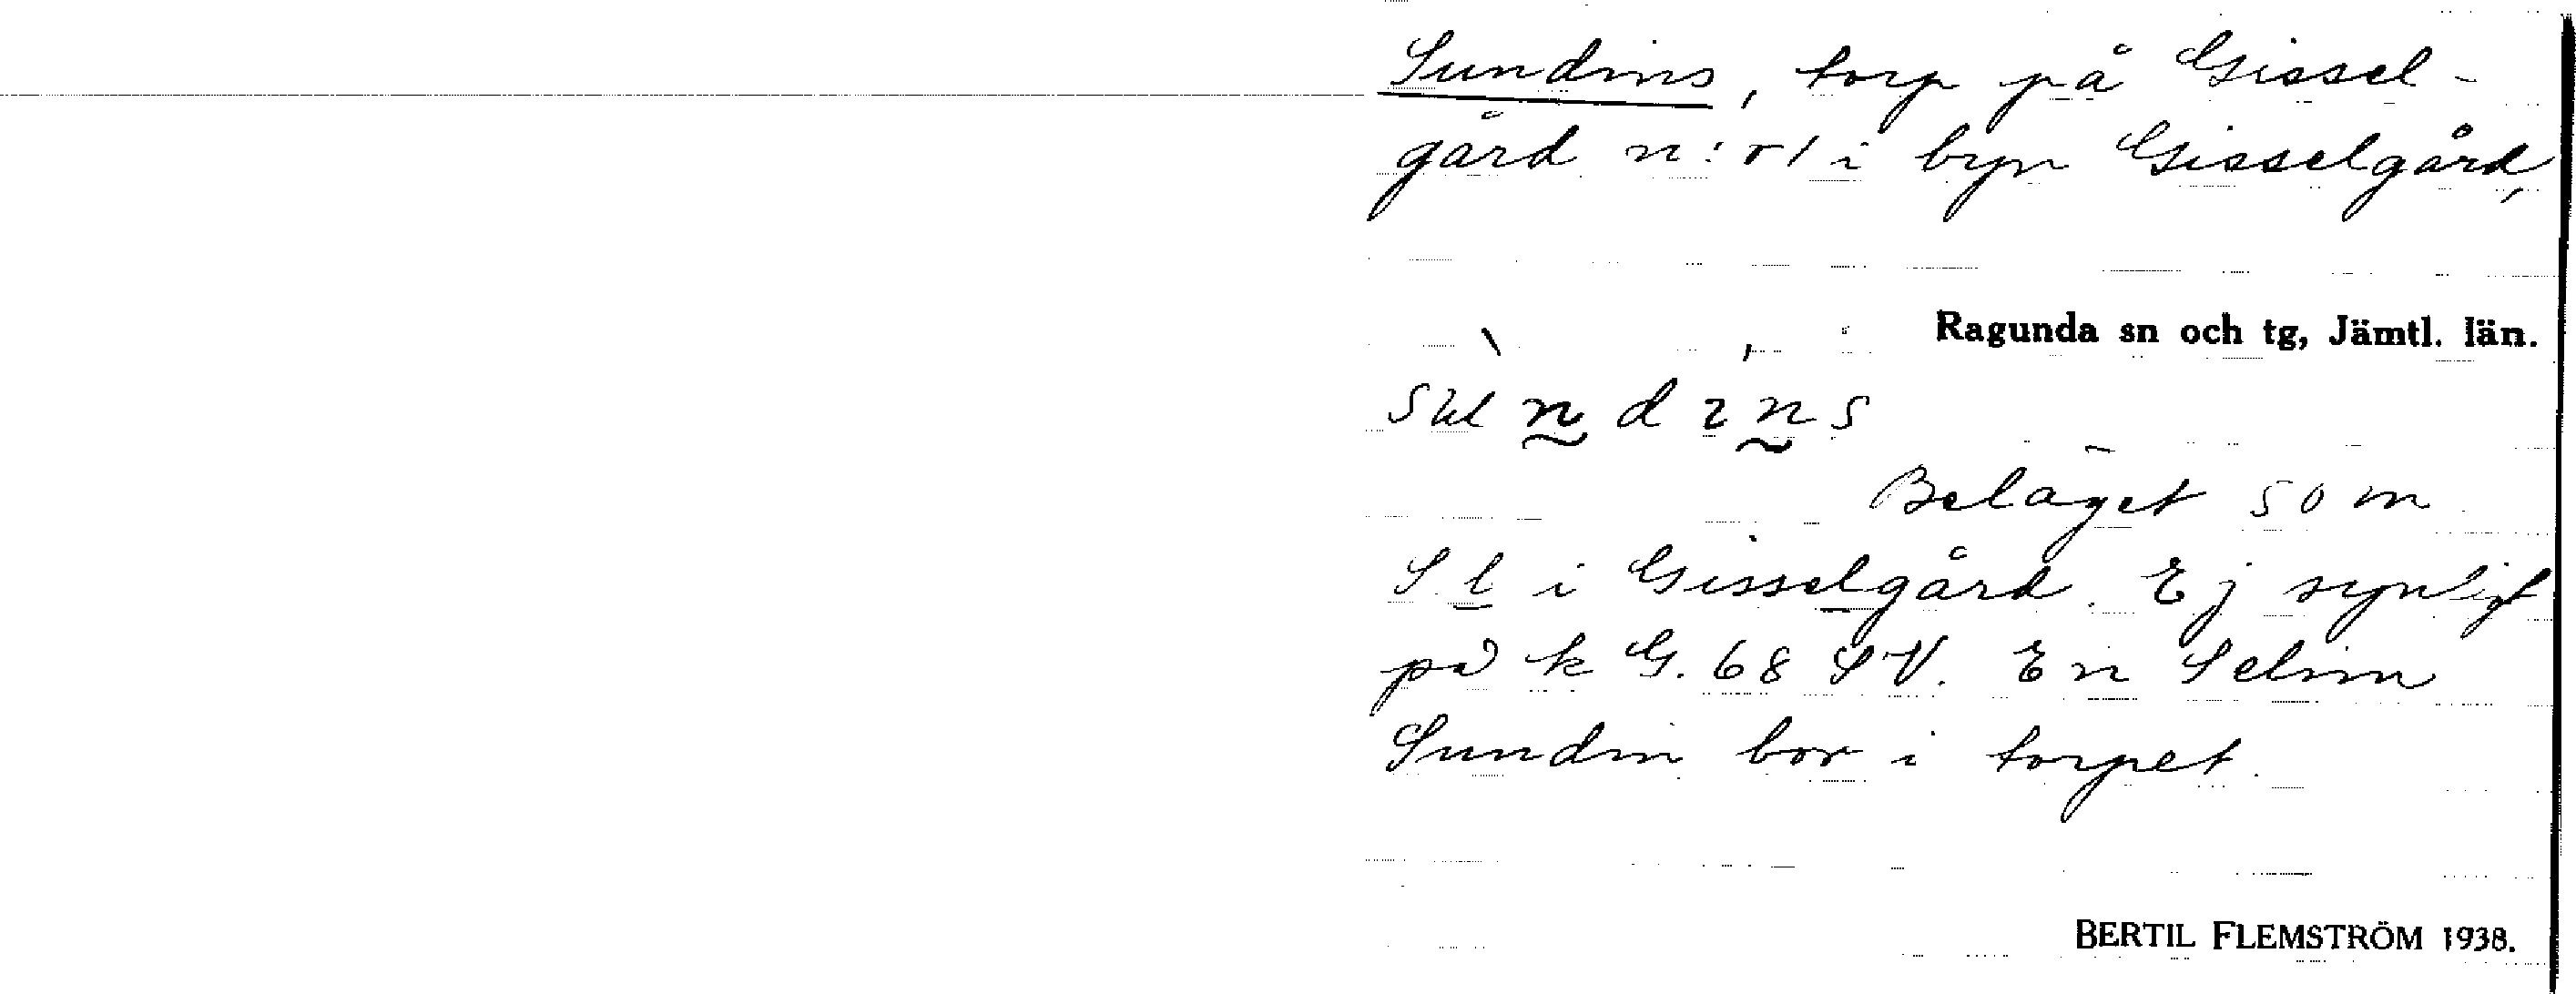 Sundins, torp på Gissel-
gård n:r 1 i byn Gisselgård,
Ragunda sn och tg, Jämtl. län.
sundins
Beläget 50 m
S l i Gisselgård. Ej synligt
på k G. 68 SV. En Selim
Sundin bor i torpet.
BERTIL FLEMSTRÖM 1938.